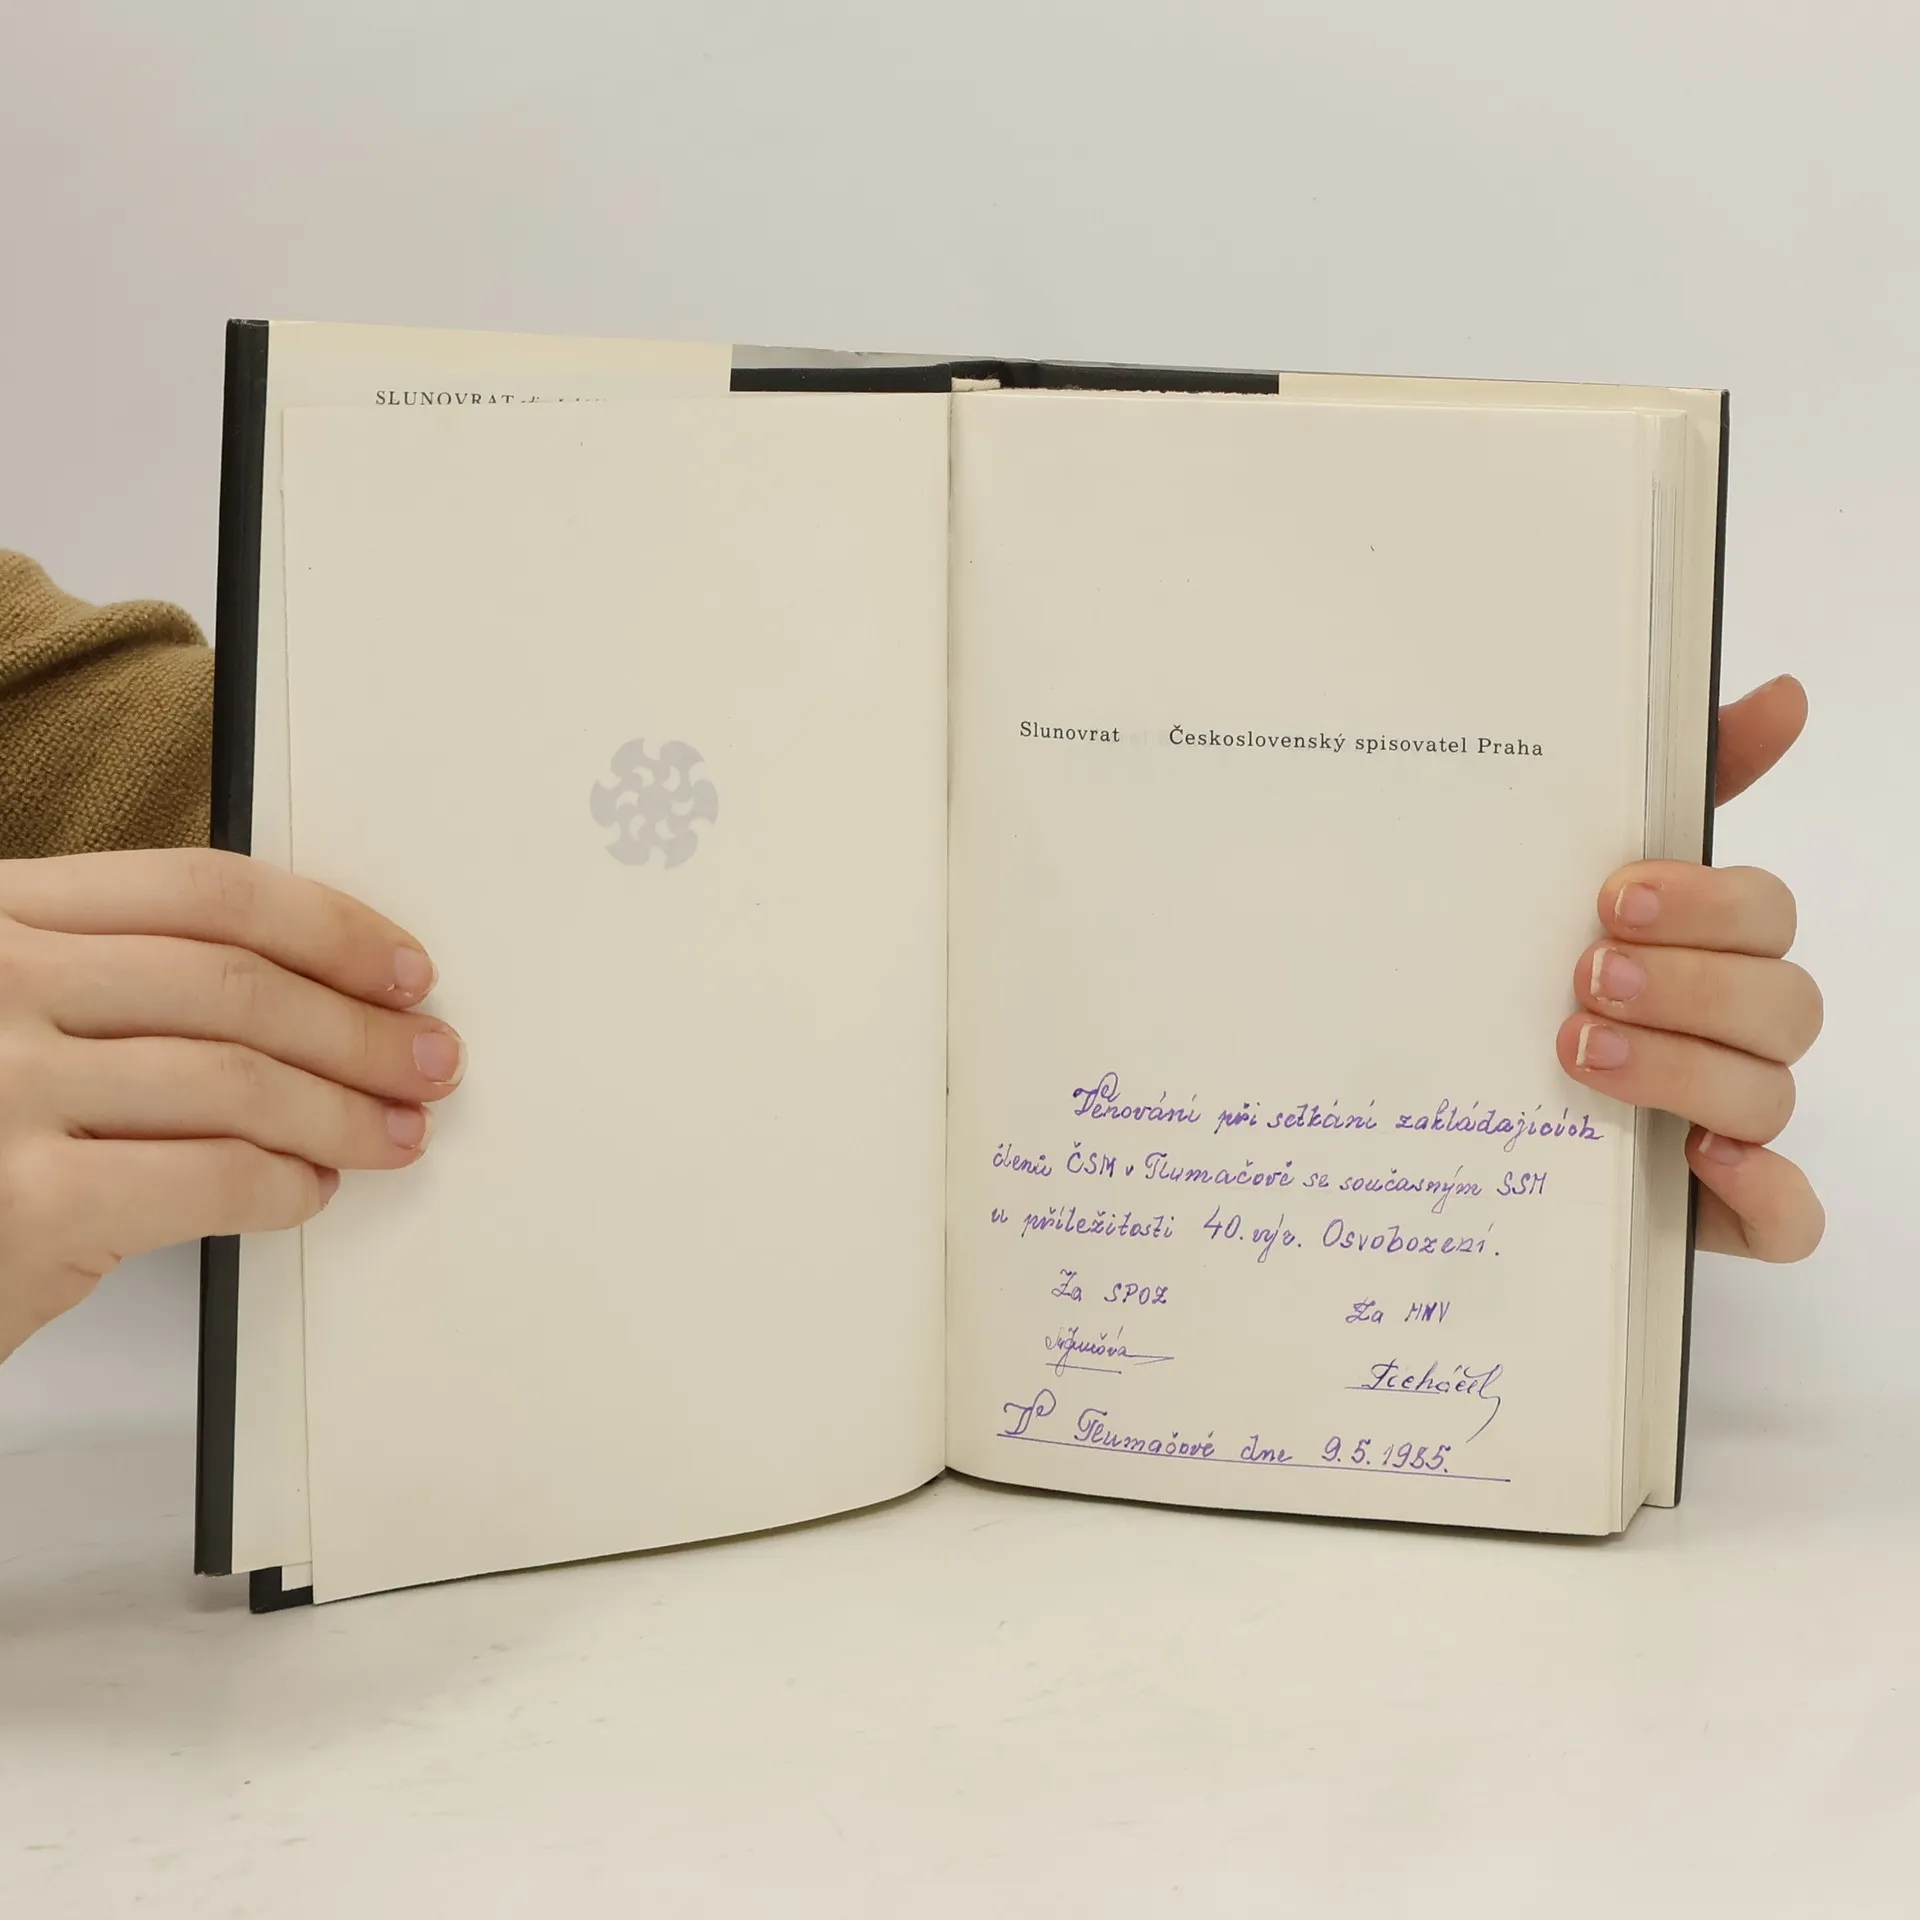 SLUNOVRAT
Slunovrat Československý spisovatel Praha
Věnování při setkání zakládajících
členů ČSM v Tlumačově se současným SSM
u příležitosti 40. výr. Osvobození.
Za SPOZ
Za MNV
V Tlumačově dne 9.5.1985.